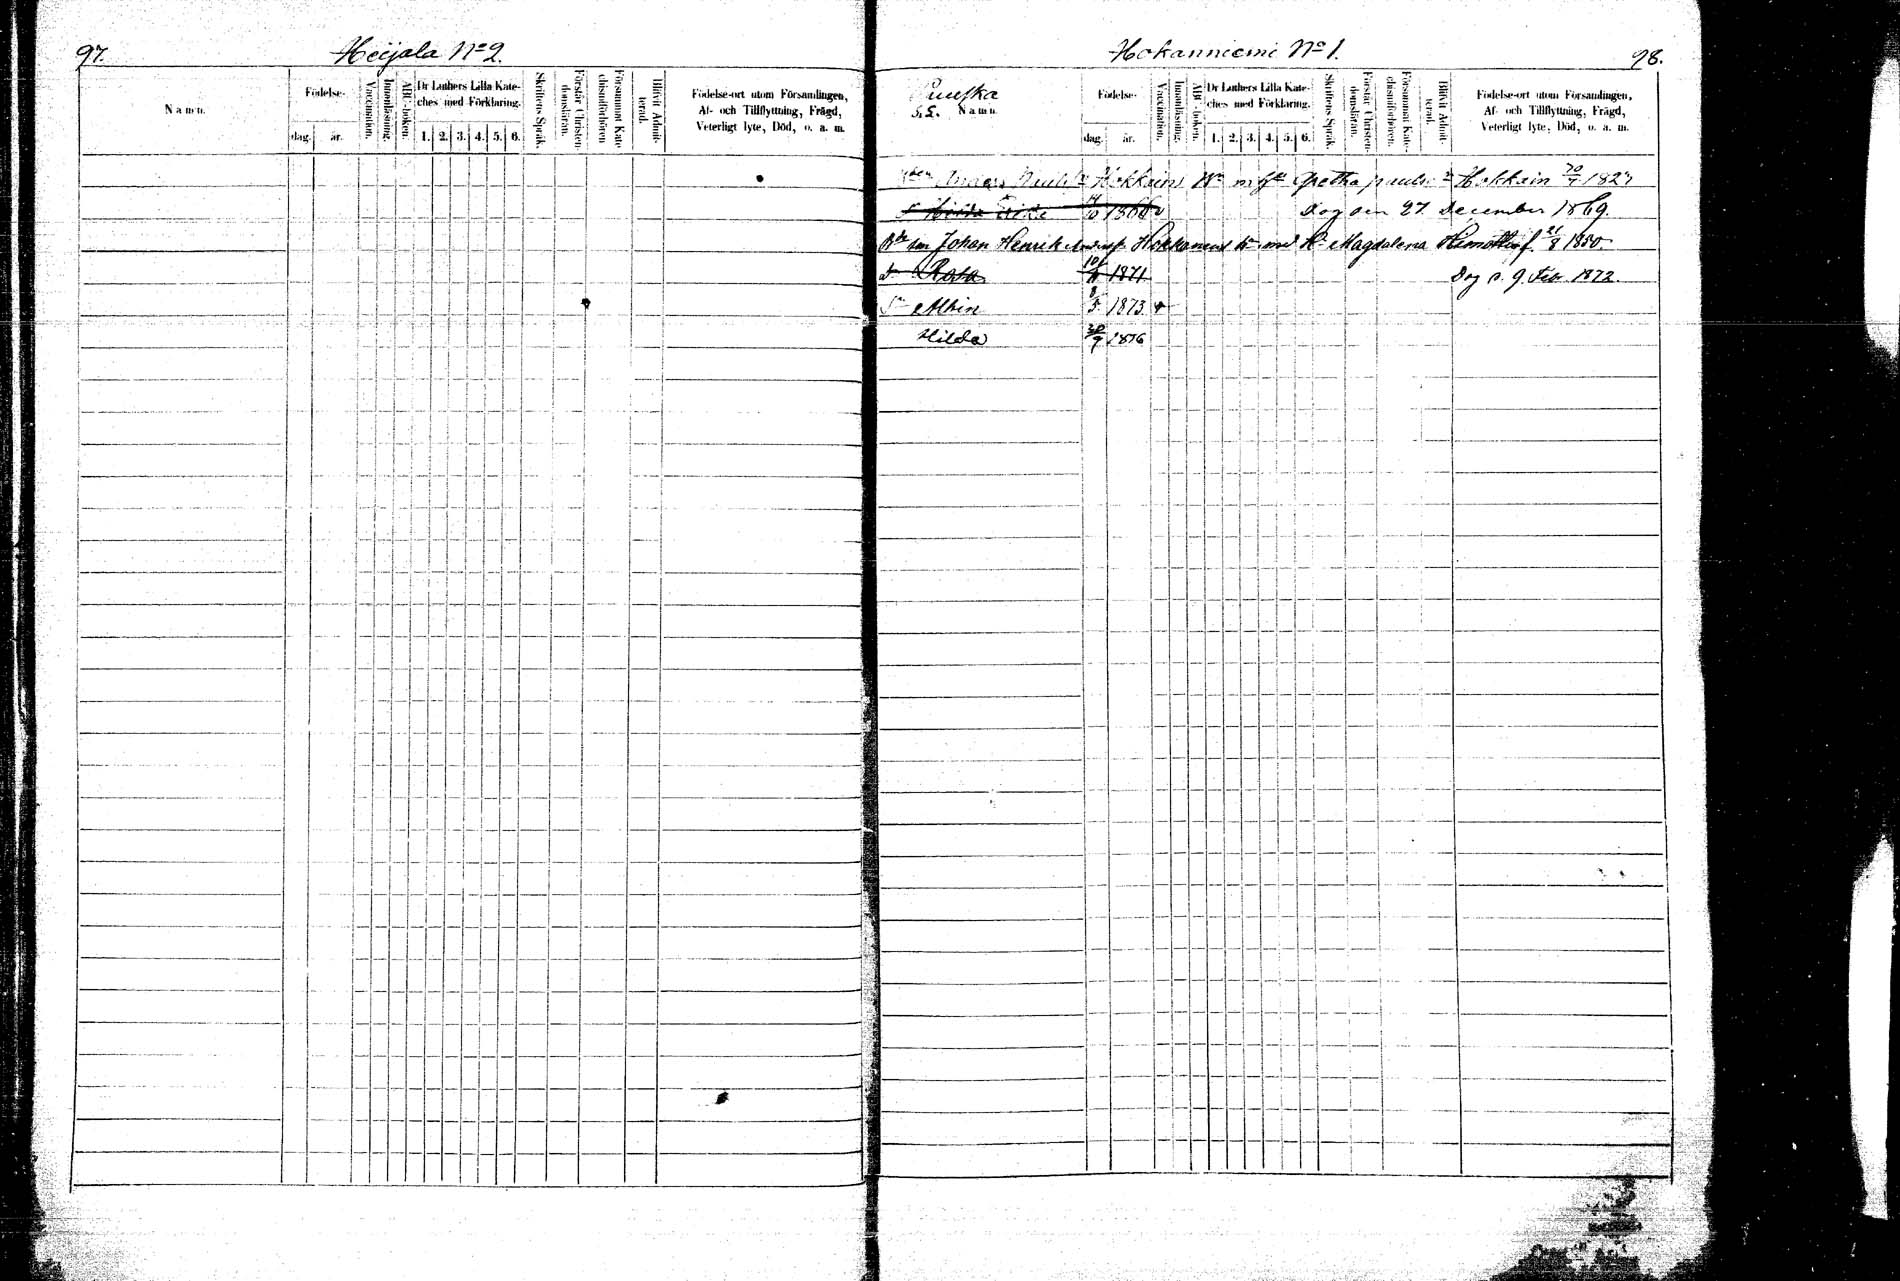 97.
Heijala No 2.
Namn.
Födelse-
dag.
år.
Vaccination.
Innanläsning.
ABC-boken.
Dr Luthers Lilla Kate-
ches med Förklaring.
1. 2. 3. 4. 5. 6.
Skriftens Språk.
Förstår Christen-
domsläran.
Försummat Kate
chismiförhören
Blifvit Admit-
terad.
Födelse-ort utom Församlingen,
Af- och Tillflyttning, Frägd,
Veterligt lyte, Död, o. a. m.
Hokanniemi No 1.
98.
Namn.
Födelse-
dag.
år.
Vaccination.
Innanläsning.
ABC-boken.
Dr Luthers Lilla Kate-
ches med Förklaring.
1. 2. 3. 4. 5. 6.
Skriftens Språk.
Förstår Christen-
domsläran.
Försummat Kate-
chismiförhören.
Blifvit Admit-
terad.
Födelse-ort utom Församlingen,
Af- och Tillflyttning, Frägd,
Veterligt lyte, Död, o. a. m.
Anders Hokkains Gretha Hokkain
1868 Dog den 27 December 1869.
Johan Henrik Hokkanens med Magdalena 21/8 1850.
Rosa 1871 Dog d. 9 Feb. 1872.
Albin 8/5 1873
Hilda 1876